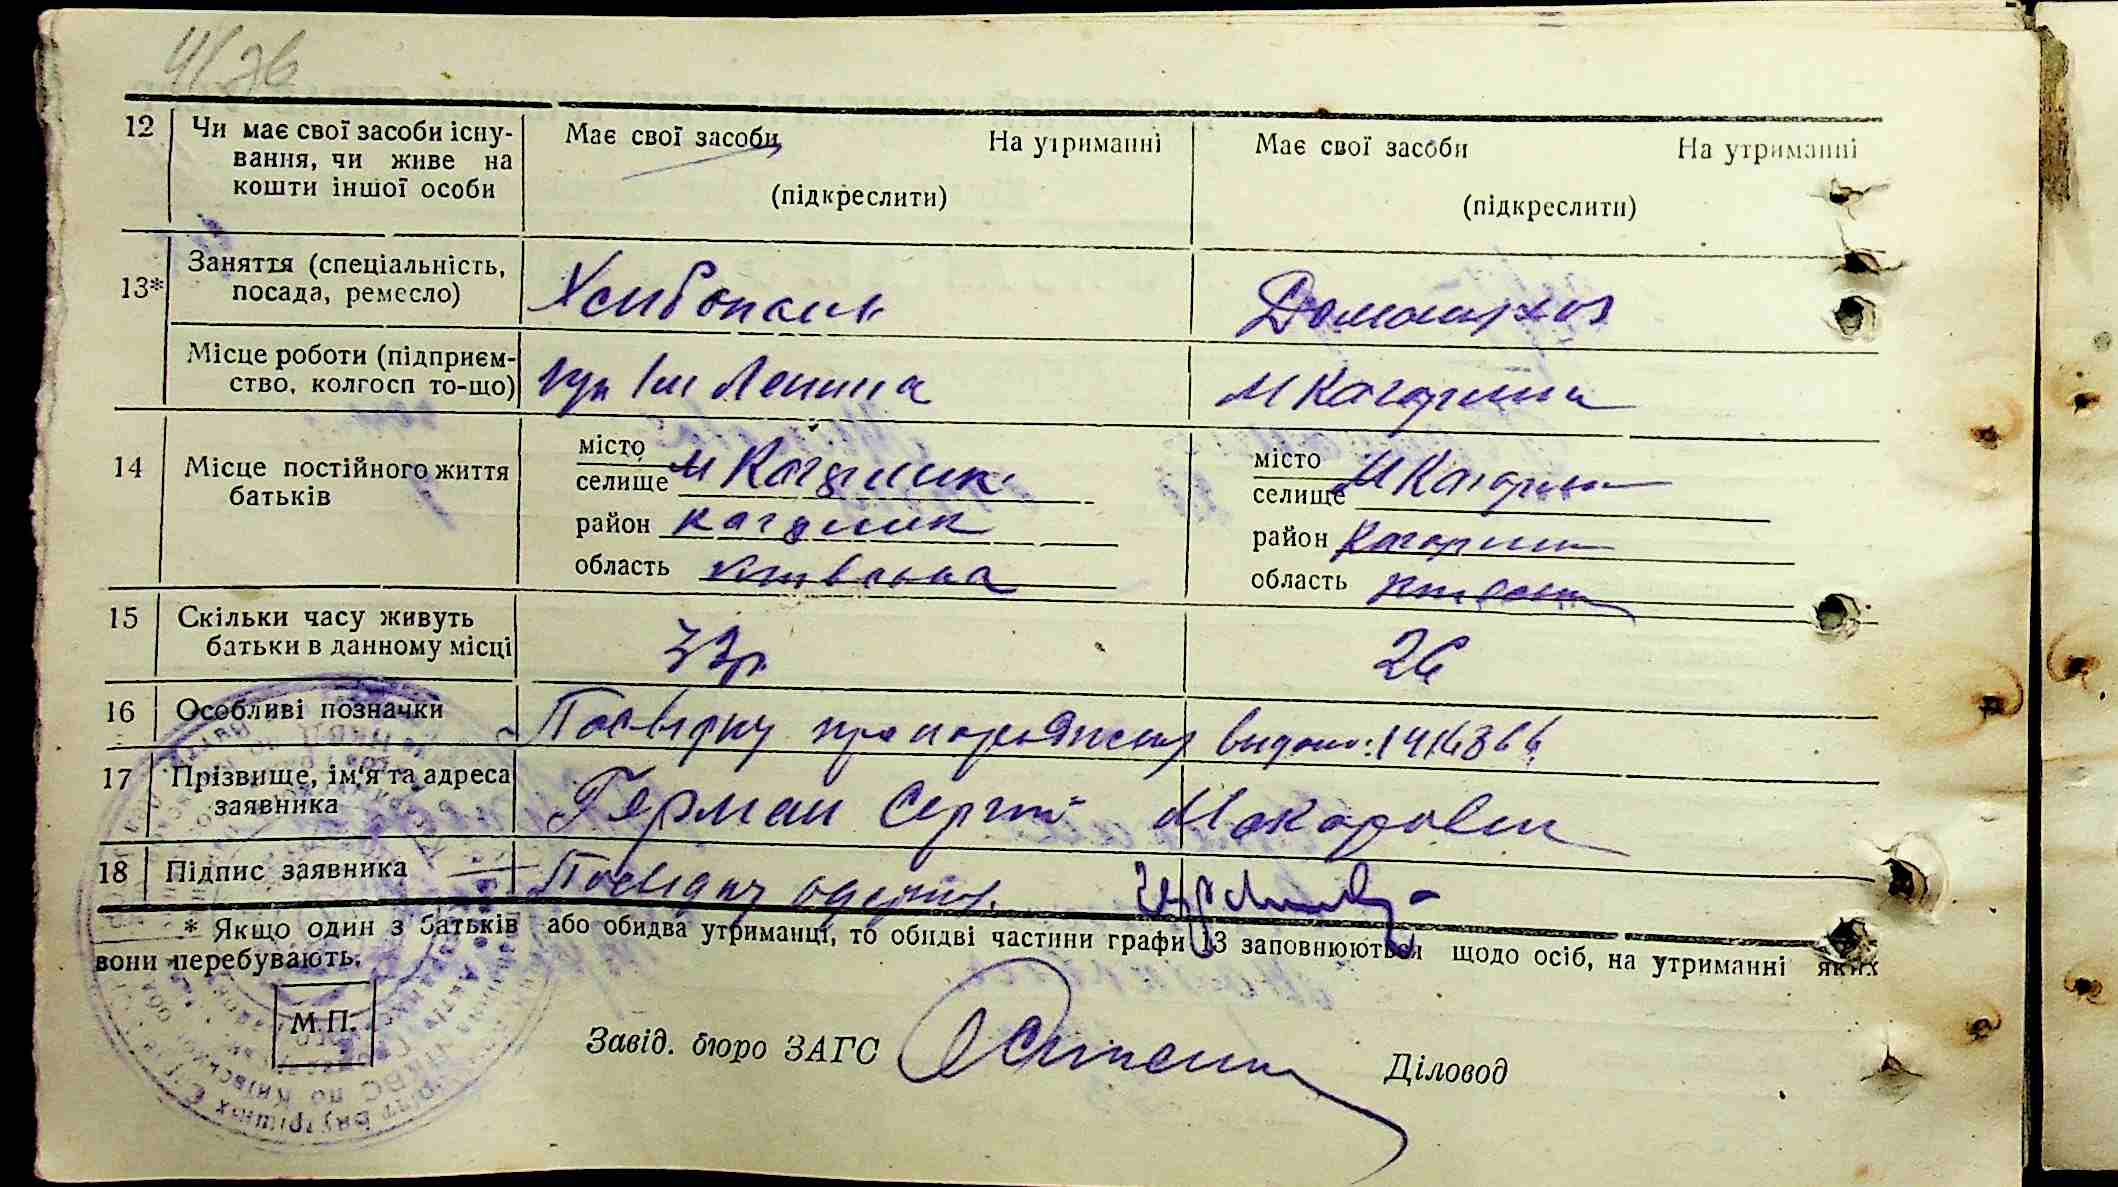 12 Чи має свої засоби існу- Має свої засоби На утриманні Має свої засоби На утриманні
вання, чи живе на
кошти іншої особи (підкреслити) (підкреслити)
13* Заняття (спеціальність,
посада, ремесло) Домашня
Місце роботи (підприєм-
ство, колгосп то-що) Ім Леніна М Кагарлик
14 Місце постійного життя місто місто
батьків селище М Кагарлик селище М Кагарлик
район Кагарлик район Кагарлик
область Київська область Київська
15 Скільки часу живуть
батьки в данному місці 33р 26
16 Особливі позначки Посвідку про народження видано: 1416366
17 Прізвище, ім'я та адреса
заявника Герман Сергій Макарович
18 Підпис заявника Посвідку одержав.
* Якщо один з батьків або обидва утриманці, то обидві частини графи 13 заповнюються щодо осіб, на утриманні яких
вони перебувають.
М.П.
Завід. бюро ЗАГС Діловод